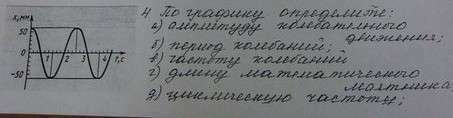 x, мм
50
0
-50
1 2 3 4 t, с
4 По графику определите:
а) амплитуду колебательного
движения;
б) период колебаний;
в) частоту колебаний
г) длину математического
маятника,
д) циклическую частоту;